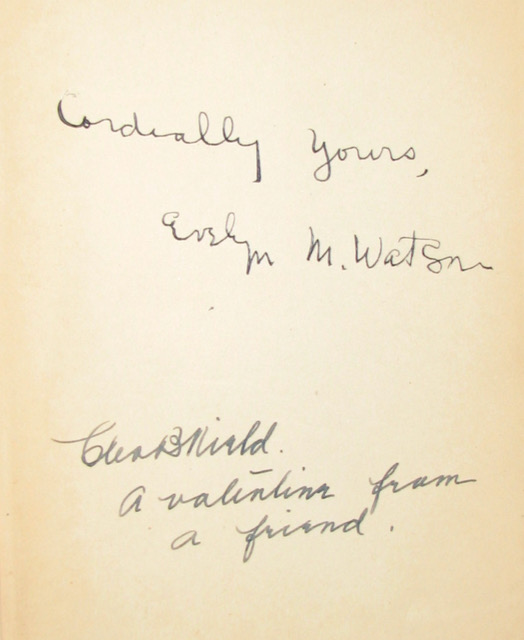 Cordially Yours,
Evelyn M. Watson
A valentine from
a friend.